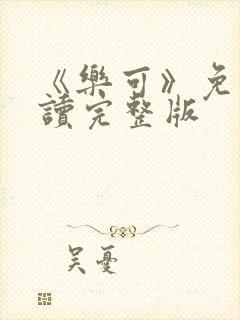 《樂可》免
讀完整版
吴憂